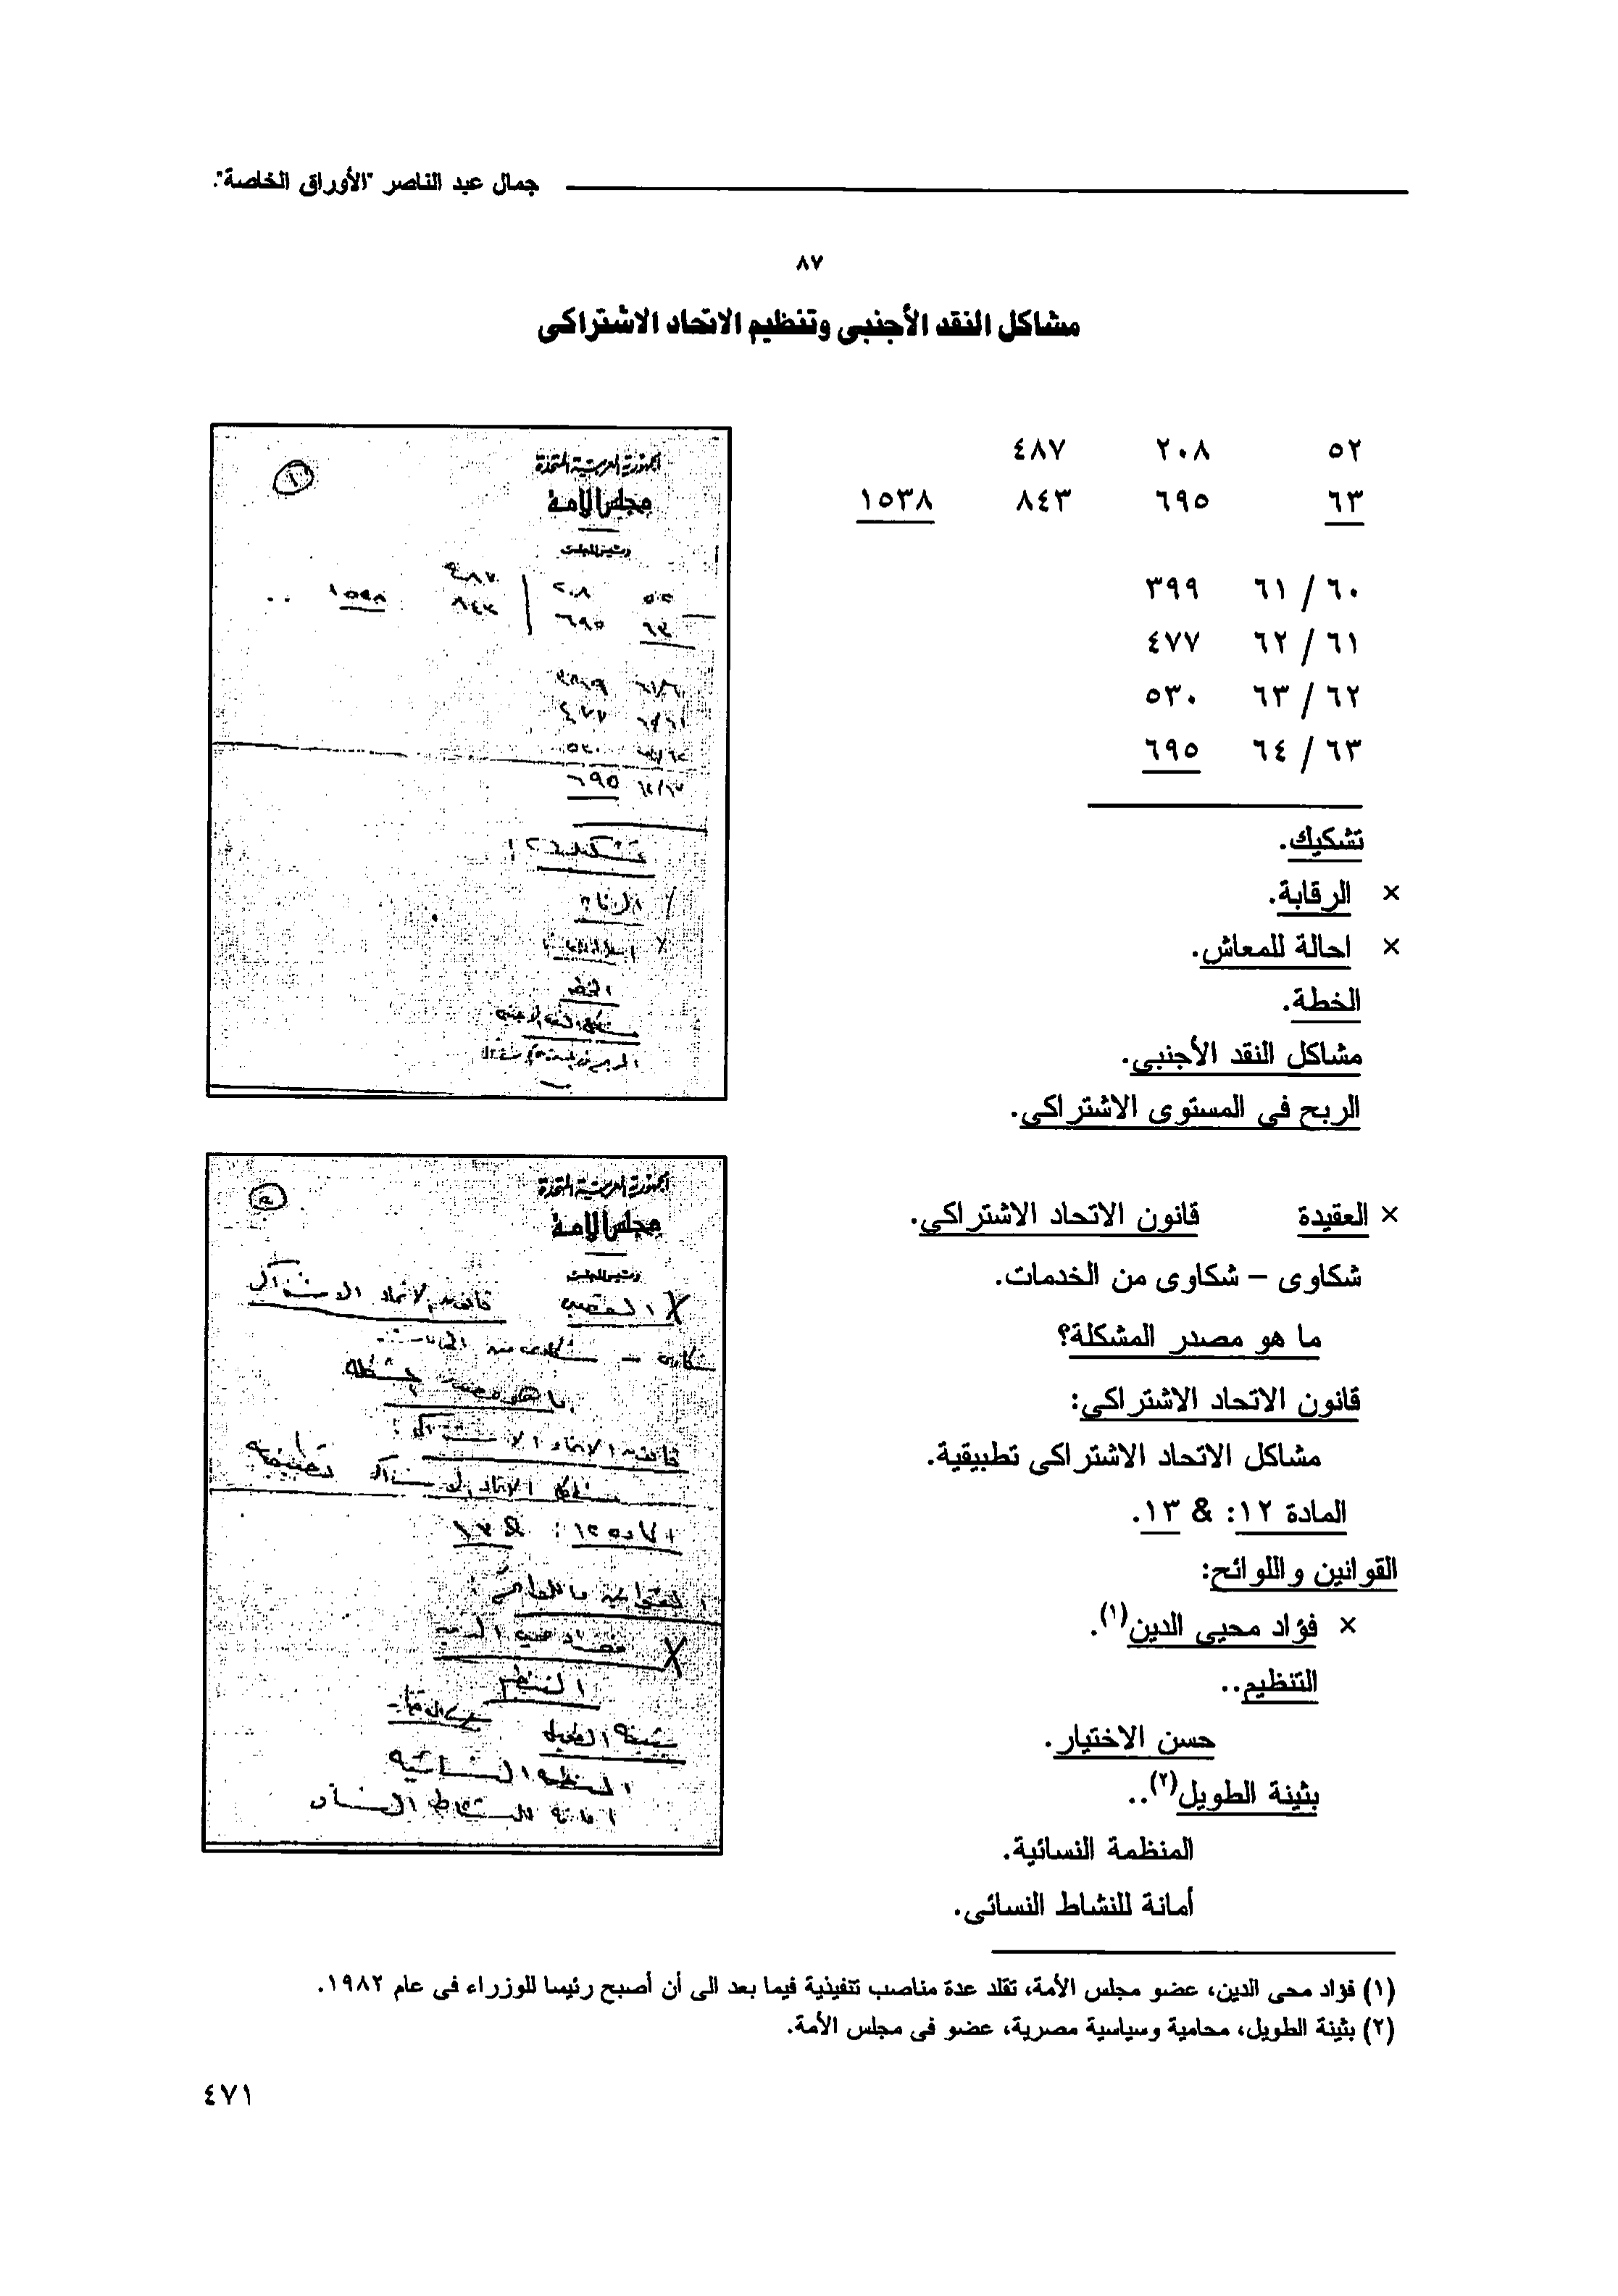 جمال عبد الناصر "الأوراق الخاصة".
٨٧
مشاكل النقد الأجنبى وتنظيم الاتحاد الاشتراكى
٥٢ ٢٠٨ ٤٨٧
٦٣ ٦٩٥ ٨٤٣ ١٥٣٨
٦٠ / ٦١ ٣٩٩
٦١ / ٦٢ ٤٧٧
٦٢ / ٦٣ ٥٣٠
٦٣ / ٦٤ ٦٩٥
تشكيك.
× الرقابة.
× احالة للمعاش.
الخطة.
مشاكل النقد الأجنبى.
الربح فى المستوى الاشتراكى.
× العقيدة قانون الاتحاد الاشتراكى.
شكاوى – شكاوى من الخدمات.
ما هو مصدر المشكلة؟
قانون الاتحاد الاشتراكى:
مشاكل الاتحاد الاشتراكى تطبيقية.
المادة ١٢: & ١٣.
القوانين واللوائح:
× فؤاد محيى الدين(١).
التنظيم..
حسن الاختيار.
بثينة الطويل(٢)..
المنظمة النسائية.
أمانة للنشاط النسائى.
الجمهورية العربية المتحدة
مجلس الأمة
رئيس المجلس
٥٢ ٢٠٨ ٤٨٧
٦٣ ٦٩٥ ٨٤٣ ١٥٣٨
٦٩٥
الجمهورية العربية المتحدة
مجلس الأمة
رئيس المجلس
(١) فؤاد محى الدين، عضو مجلس الأمة، تقلد عدة مناصب تنفيذية فيما بعد الى أن أصبح رئيسا للوزراء فى عام ١٩٨٢.
(٢) بثينة الطويل، محامية وسياسية مصرية، عضو فى مجلس الأمة.
٤٧١